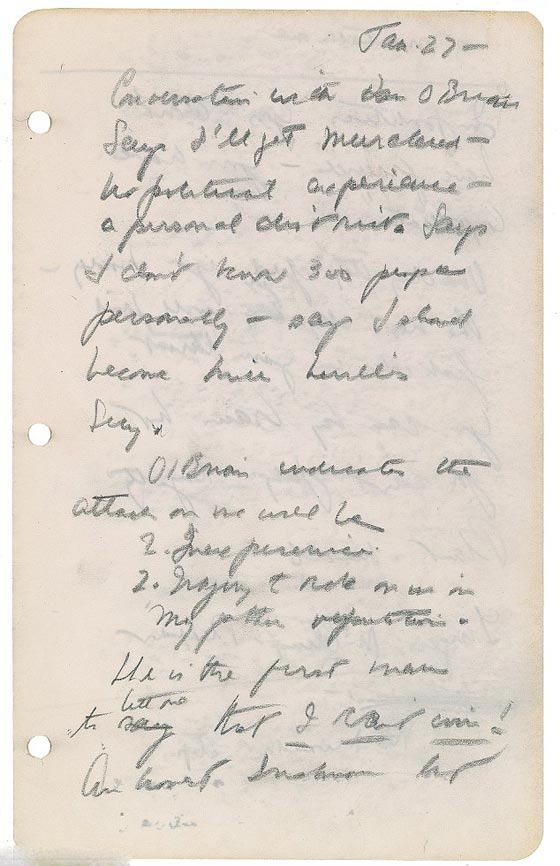 Jan. 27 –
Conversation with Dan O'Brien
Says I'll get murdered –
No political experience –
a personal district. Says
I don't know 300 people
personally – says I should
become Mike Neville's
Secy.
O'Brien indicates the
attack on me will be
2. Inexperience
2. Injury to me on in
my father reputation.
He is the first man
to bet me that I can't win!
An honest Irishman but